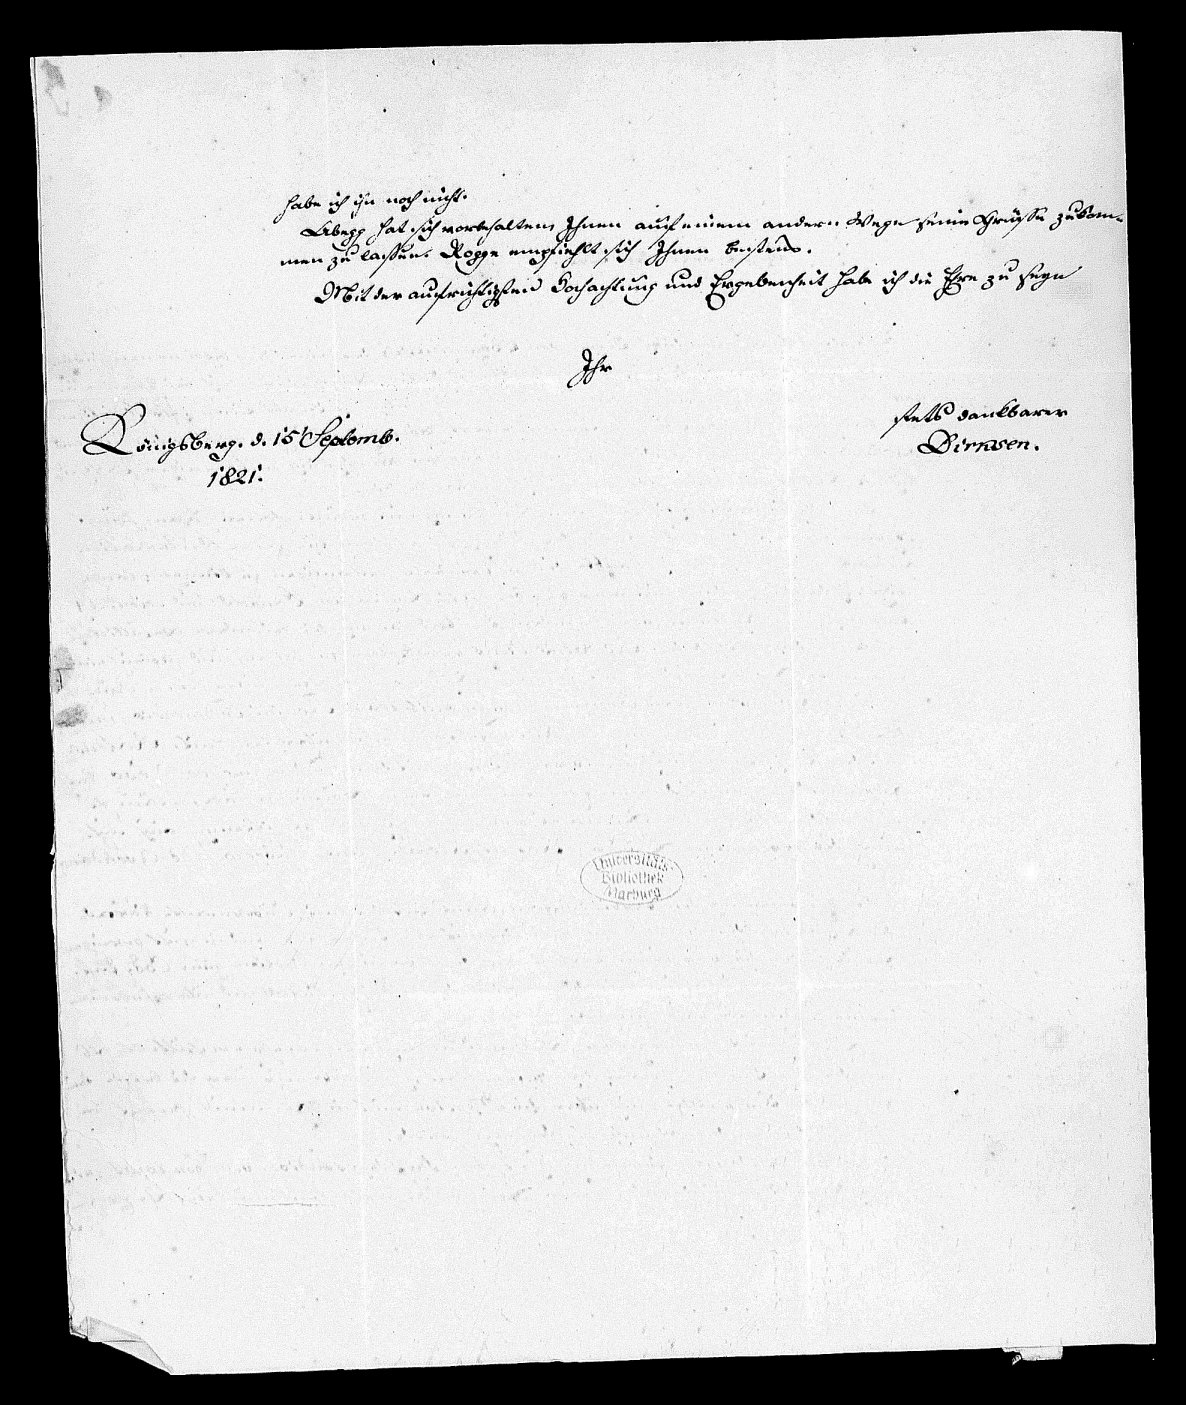 habe ich ihn noch nicht.
Abegg hat sich vorbehalten, Ihnen auf einem andern Wege seine Grüsse zukom-
men zu lassen. Rogge empfiehlt sich Ihnen bestens.
Mit der aufrichtigsten Hochachtung und Ergebenheit habe ich die Ehre zu seyn
Ihr
stets dankbarer
Dirksen.
Königsberg. d. 15 Septemb.
1821.
Universitäts-
Bibliothek
Marburg